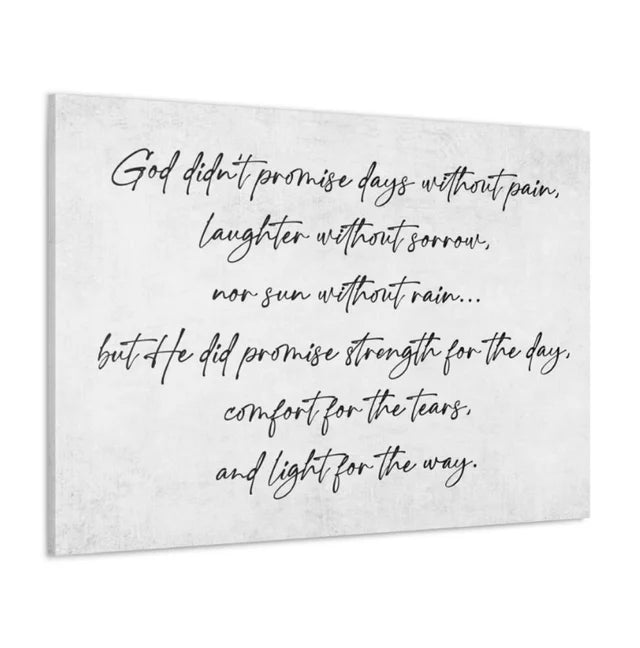 God didn't promise days without pain,
laughter without sorrow,
nor sun without rain...
but He did promise strength for the day,
comfort for the tears,
and light for the way.